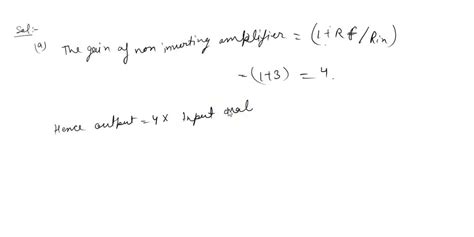 Sol:-
(a) The gain of non inverting amplifier = (1+Rf/Rin)
=(1+3) = 4.
Hence output = 4 x Input